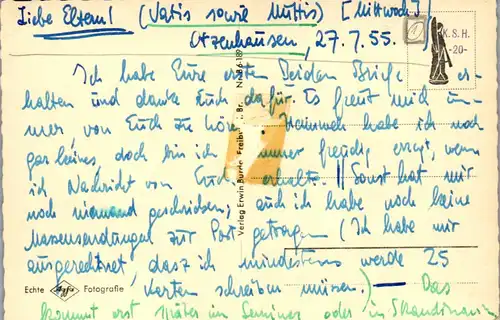 Liebe Eltern! (Vatis sowie Muttis) [Mittwoch]
Otzenhausen, 27.7.55.
K.S.H.
-20-
Ich habe Eure ersten beiden Briefe er-
halten und danke Euch dafür. Es freut mich im-
mer, von Euch zu hören. Heimweh habe ich noch
gar keines, doch bin ich immer freudig erregt, wenn
ich Nachricht von Euch erhalte. || Sonst hat mir
noch niemand geschrieben; auch ich habe noch keine
Massensendungen zur Post getragen (Ich habe mir
ausgerechnet, dasz ich mindestens werde 25
Karten schreiben müssen.) — Das
kommt erst später im Seminar oder in Skandinavien
Verlag Erwin Burda Freiburg i. Br.
Echte Agfa Fotografie